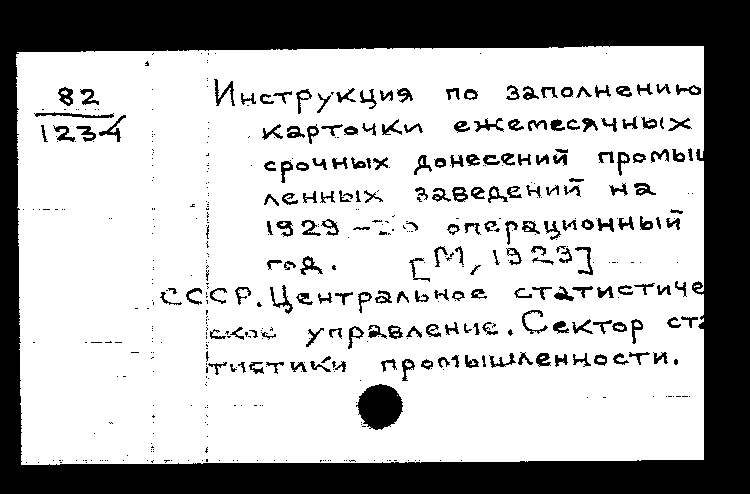 82
1234
Инструкция по заполнению
карточки ежемесячных
срочных донесений промыш
ленных заведений на
1929-30 операционный
год. [М, 1929]
СССР. Центральное статистиче
ское управление. Сектор ста
тистики промышленности.